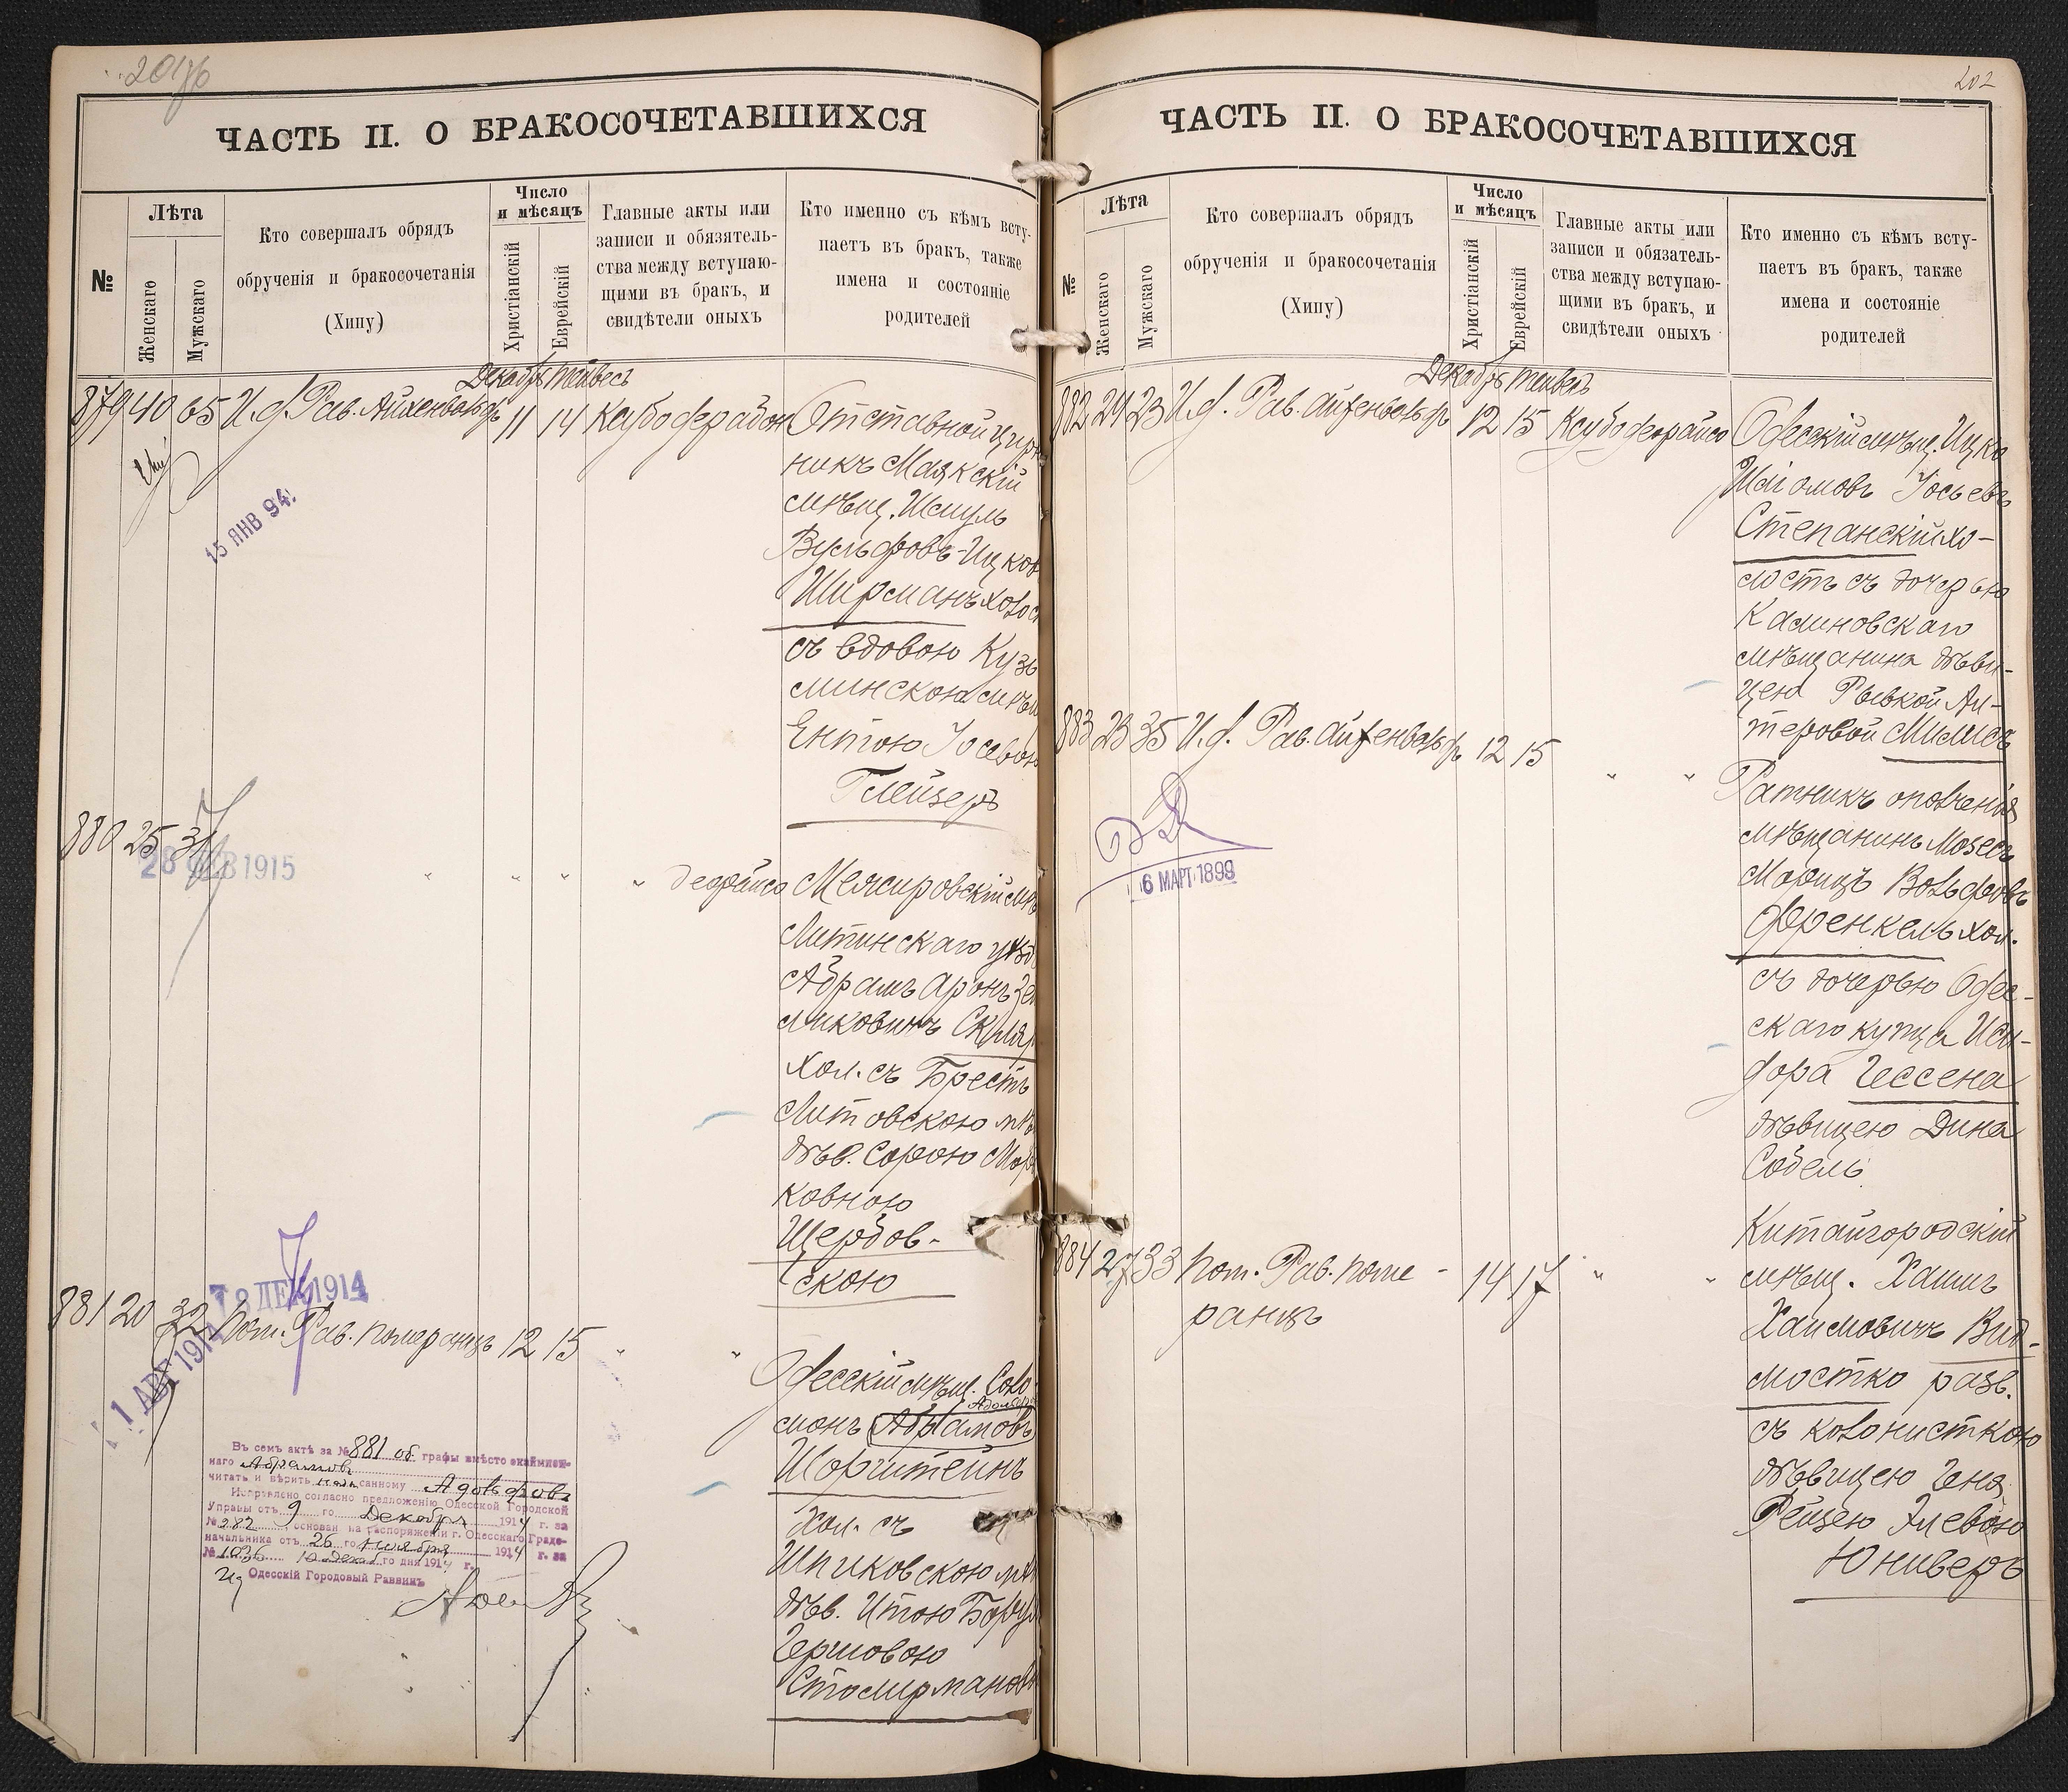 201об
ЧАСТЬ II. О БРАКОСОЧЕТАВШИХСЯ
№
Лѣта
Женскаго
Мужскаго
Кто совершалъ обрядъ
обрученія и бракосочетанія
(Хипу)
Число
и мѣсяцъ
Христіанскій
Еврейскій
Главные акты или
записи и обязатель-
ства между вступаю-
щими въ бракъ, и
свидѣтели оныхъ
Кто именно съ кѣмъ всту-
паетъ въ бракъ, также
имена и состояніе
родителей
Декабрь Тейвесъ
879 40 65 И.д. Рав. Айхенвальдъ 11 14
Отставной
никъ Маякскій
мѣщ. Шмуль
Вульфовъ-Ицков
Ширманъ холос
съ вдовою Кузь
минскою мѣщ
Ентою Іосевою
Глейзеръ
15 ЯНВ 94.
880 25 31 " " " "
28 ФЕВ 1915
Межировскій мѣ
Литинскаго уѣзд
Абрамъ Аронъ Зе
ликовичъ Скляр
хол. съ Брестъ
Литовскою мѣ
дѣв. Сорою Мор
ковною
Щербов-
скою
881 20 32 Пом. Рав. Померанцъ 12 15 " "
8 ДЕК 1914
1 АВГ 1914
Одесскій мѣщ. Соло
Адольфов
монъ Абрамовъ
Шорштейнъ
хол. съ
Шпиковскою мѣ
дѣв. Итою Борух
Гершовою
Стомирманов
Въ семъ актѣ за № 881 об графы вмѣсто
наго Абрамовъ
читать и вѣрить написанному Адольфовъ
Исправлено согласно предложенію Одесской Городской
Управы отъ 9 го Декабря 1914 г. за
№ 282 основан на распоряженіи г. Одесскаго Градо-
начальника отъ 26 го ноября 1914 г. за
№ 1036 10 декаб го дня 1914 г.
Одесскій Городовый Раввинъ
202
ЧАСТЬ II. О БРАКОСОЧЕТАВШИХСЯ
№
Лѣта
Женскаго
Мужскаго
Кто совершалъ обрядъ
обрученія и бракосочетанія
(Хипу)
Число
и мѣсяцъ
Христіанскій
Еврейскій
Главные акты или
записи и обязатель-
ства между вступаю-
щими въ бракъ, и
свидѣтели оныхъ
Кто именно съ кѣмъ всту-
паетъ въ бракъ, также
имена и состояніе
родителей
Декабрь Тейвесъ
882 24 23 И.д. Рав. Айхенвальдъ 12 15
Одесскій мѣщ. Ицко
Шаломовъ Іосьевъ
Степанскій хо-
лостъ съ дочерью
Калиновскаго
мѣщанина дѣви-
цею Рывкой Ал-
теровой Милисъ
883 23 35 И.д. Рав. Айхенвальдъ 12 15 " "
6 МАРТ 1899
Ратникъ ополченія
мѣщанинъ Мозесъ
Морицъ Вольфовъ
Френкель хол.
съ дочерью Одес-
скаго купца Иси-
дора Гессена
дѣвицею Дина
Собель
884 27 33 Пом. Рав. Поме- 14 17 " "
ранцъ
Китайгородскій
мѣщ. Хаимъ
Хаимовичъ Вид-
мостко разв.
съ колонисткою
дѣвицею Геня
Рейзею Элевою
Юниверъ